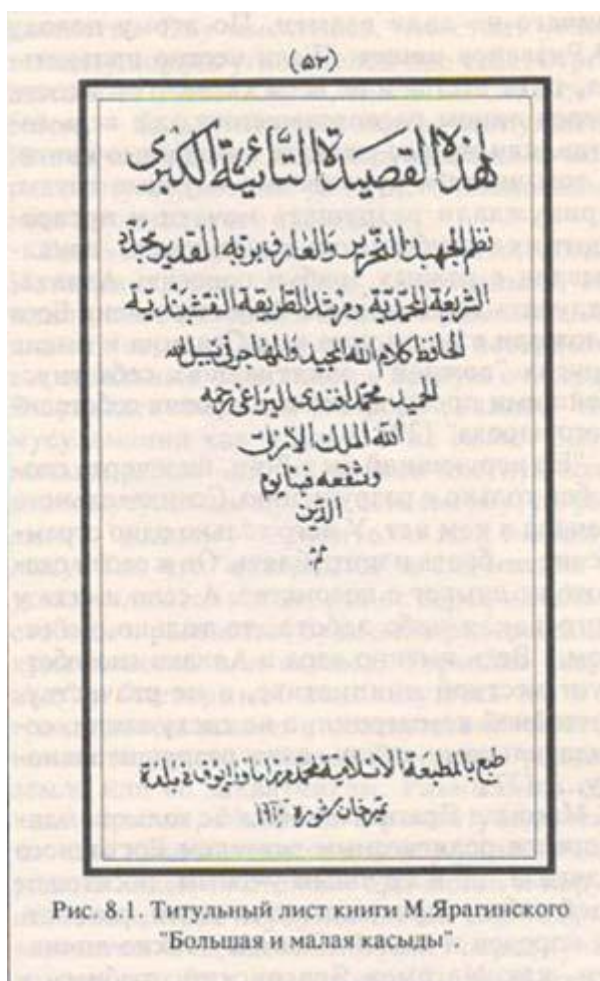 (٥٢)
هذه القصيدة التائية الكبرى
نظم الجهبذ النحرير والعارف بربه القدير مجدد
الشريعة المحمدية ومرشد الطريقة النقشبندية
الحافظ كلام الله المجيد والمهاجر في سبيل الله
الحميد محمد افندي اليراغي رحمه
الله الملك الازلي
وشفعه فينا يوم
الدين
طبع بالمطبعة الاسلامية لمحمد ميرزا ماورايوف في بلدة
تمرخان شوره
Рис. 8.1. Титульный лист книги М.Ярагинского
"Большая и малая касыды".